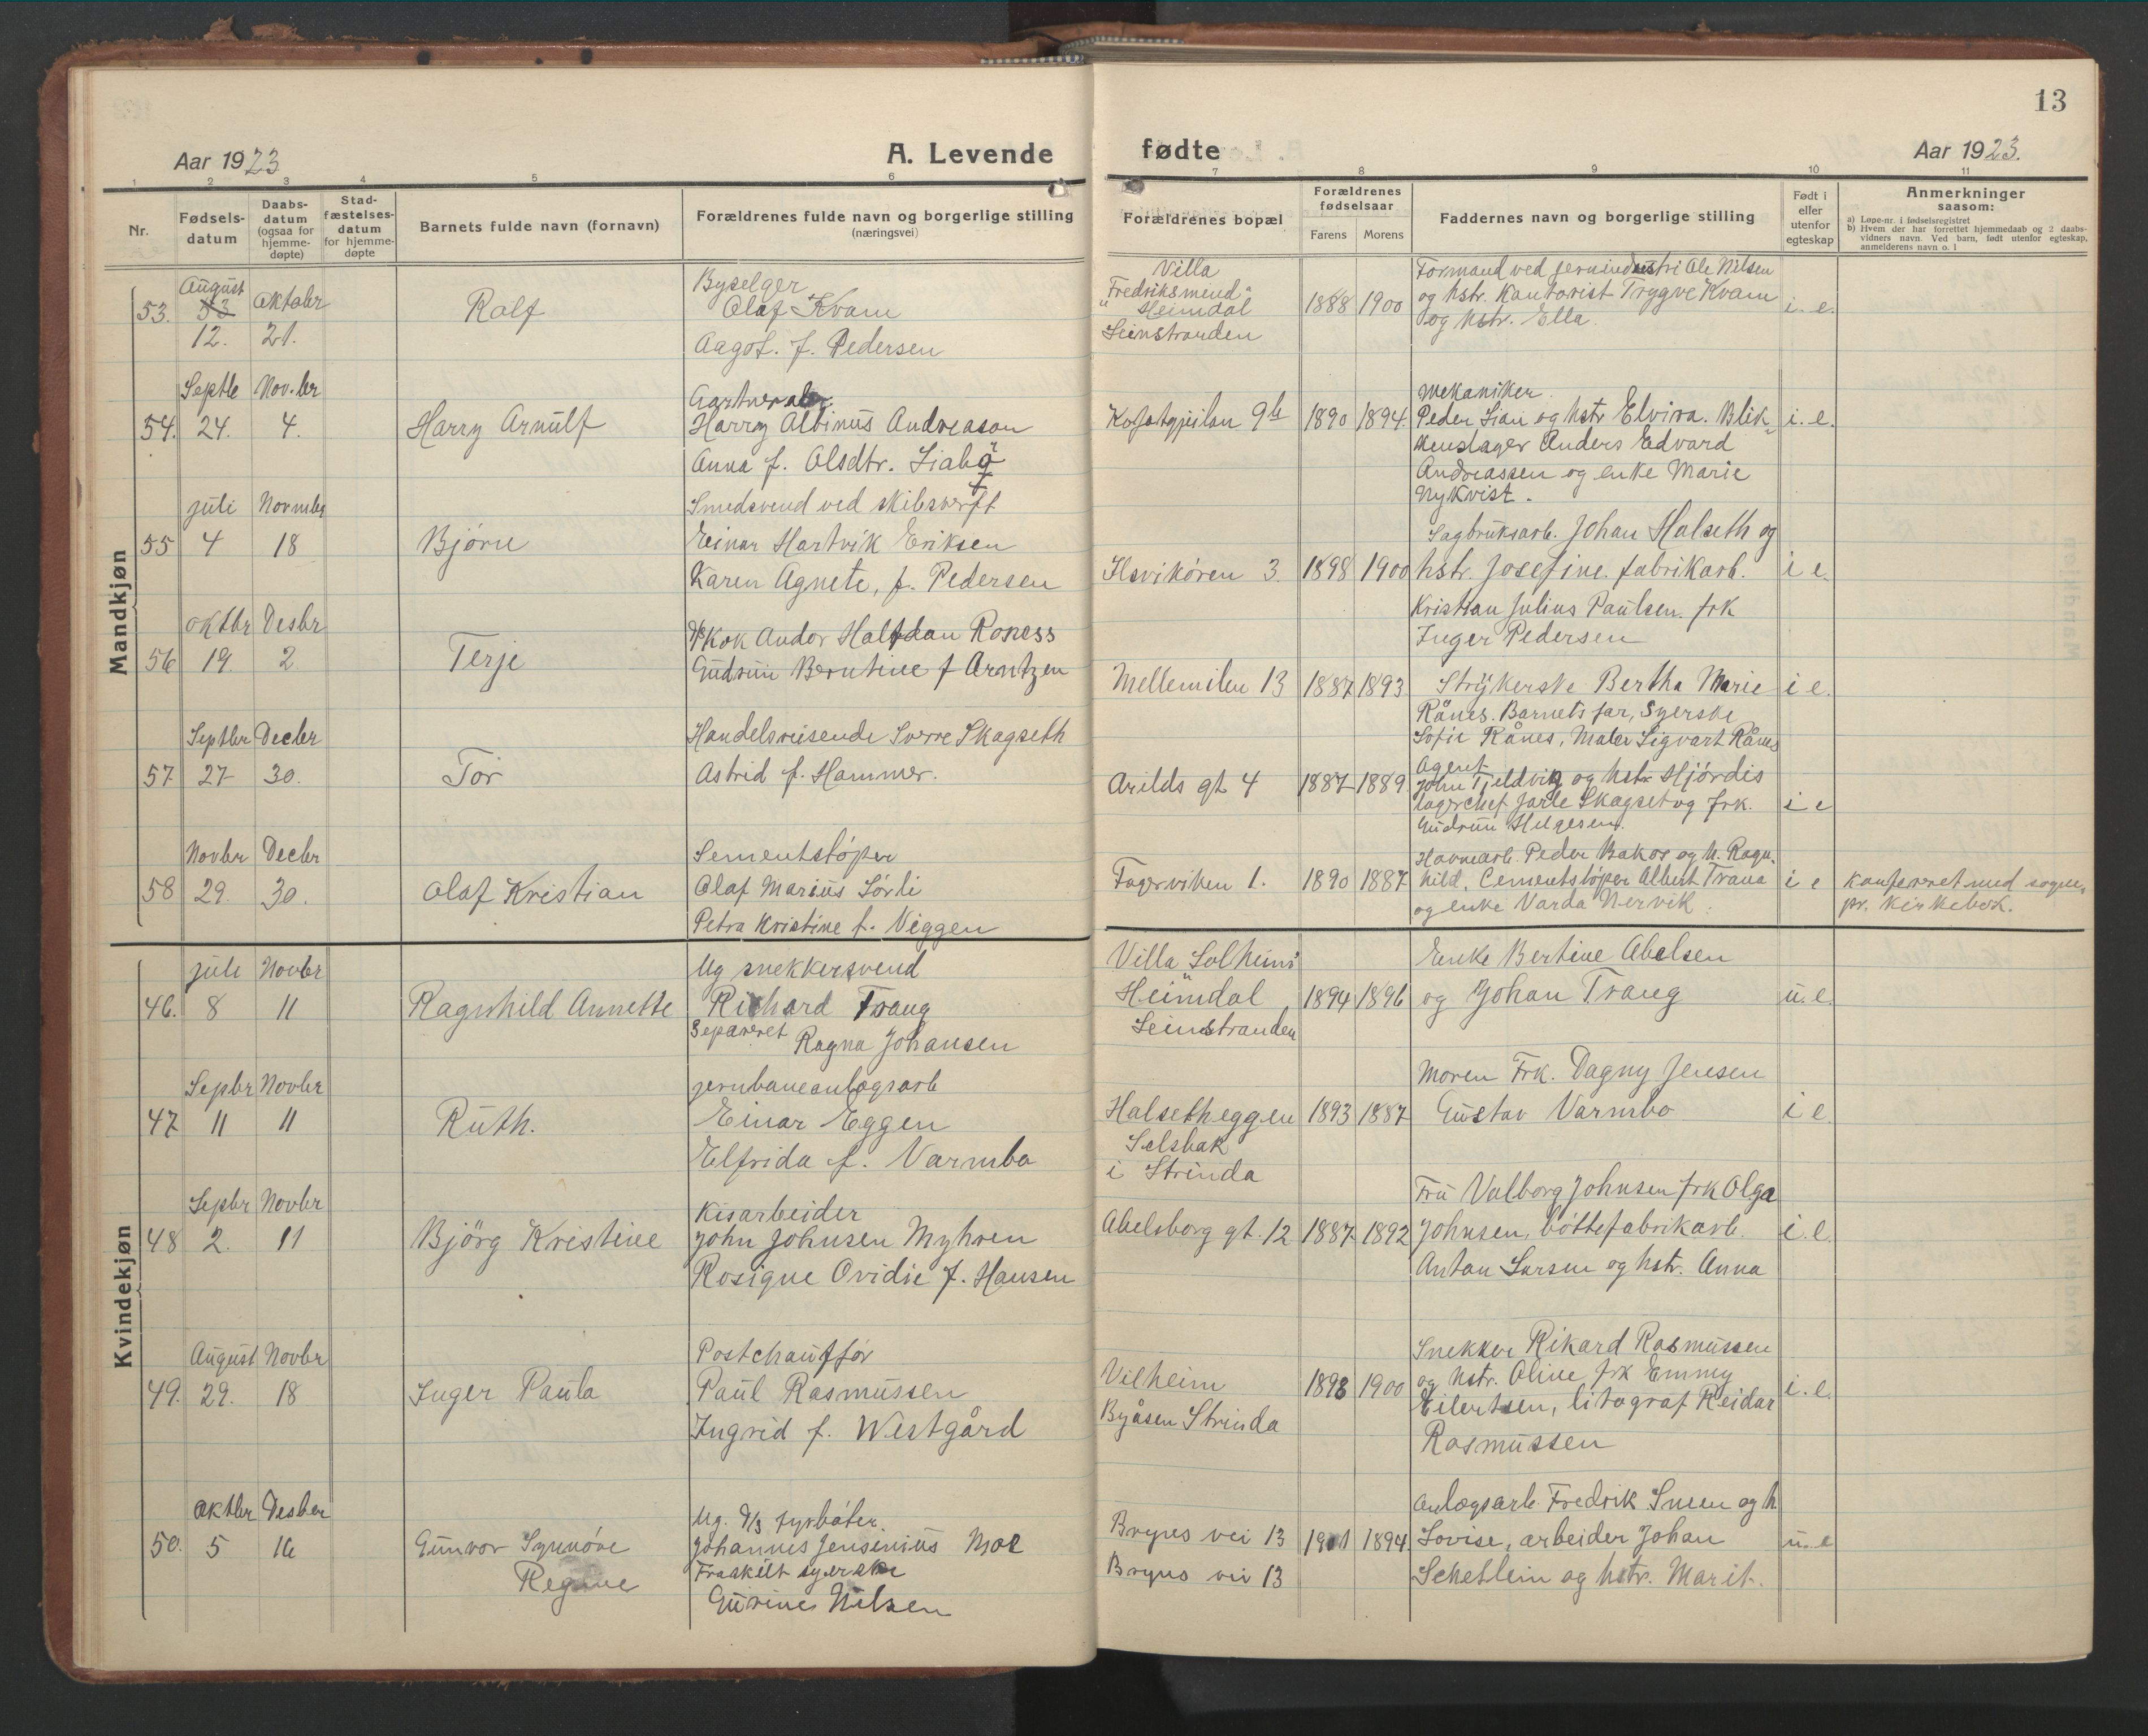 13
Aar 1923
A. Levende
fødte
Aar 1923.
1 2 3 4 5 6 7 8 9 10 11
Nr.
Fødsels-
datum
Daabs-
datum
(ogsaa for
hjemme-
døpte)
Stad-
fæstelses-
datum
for hjemme-
døpte
Barnets fulde navn (fornavn)
Forældrenes fulde navn og borgerlige stilling
(næringsvei)
Forældrenes bopæl
Forældrenes
fødselsaar
Farens Morens
Faddernes navn og borgerlige stilling
Født i
eller
utenfor
egteskap
Anmerkninger
saasom:
a) Løpe-nr. i fødselsregistret
b) Hvem der har forrettet hjemmedaab og 2 daabs-
vidners navn. Ved barn, født utenfor egteskap,
anmelderens navn o. l
Mandkjøn
53.
August
12.
Oktober
21.
Rolf
Byselger
Olaf Kvam
Aagot. f. Pedersen
Villa
"Fredriksminde"
Heimdal
Leinstranden
1888 1900
Formand ved jernindustri Ole Nilsen
og hstr. Kontorist Trygve Kvam
og hstr. Ella
i. e.
54.
Septbr
24.
Nov.br
4.
Harry Arnulf
Harry Albinus Andreason
Anna f. Olsdtr. Liabø
9b
1890 1894.
Mekaniker
Peder Lian og hstr Elvira. Blik-
kenslager Anders Edvard
Andreassen og enke Marie
Nykvist.
i. e.
55
juli
4
Novmbr
18
Bjørn
Smedsvend ved skibsverft
Einar Hartvik Eriksen
Karen Agnete, f. Pedersen
Ilsvikøren 3.
1898 1900
Sagbruksarb. Johan Halseth og
hstr. Josefine. fabrikarb.
Kristian Julius Paulsen. frk
Inger Pedersen
i e.
56
Oktbr
19.
Desbr
2
Terje
Kok Andor Halfdan Roness
Gudrun Berntine f Arntzen
Mellemilen 13
1887 1893
Strykerske Bertha Marie
Rånes. Barnets far, Syerske
Sofie Rånes, Maler Sigvart Rånes
i e.
57
Septbr
27
Decbr
30.
Tor
Handelsreisende Sverre Skagseth
Astrid f. Hammer.
Arilds gt 4
1887 1889.
Agent
John Tjeldvig og hstr Hjördis
lagerchef Jarle Skagset og frk.
Gudrun Helgesen.
i e
58
Novbr
29.
Decbr
30.
Olaf Kristian
Sementstøper
Olaf Marius Sørli
Petra Kristine f. Viggen
Fagerviken 1.
1890 1887
Havnearb. Peder Bakøs og h. Ragn-
hild, Cementstøper Albert Trana
og enke Varda Nervik.
i e
Konfereret med sogne-
pr. kirkebok.
Kvindekjøn
46.
juli
8
Novbr
11
Ragnhild Annette
Ug snekkersvend
Richard Trang
Separeret Ragna Johansen
Villa Solheim
Heimdal
Leinstranden
1894 1896
Enke Bertine Abelsen
og Johan Trang
u. e.
47
Sepbr
11
Novbr
11
Ruth.
jernbaneanlægsarb
Einar Eggen
Elfrida f. Varmbo
Halsetheggen
Selsbak
i Strinda
1893 1887
Moren Frk. Dagny Jensen
Gustav Varmbo
i e.
48
Sepbr
2.
Novbr
11
Bjørg Kristine
Kisarbeider
John Johnsen Myhren
Rosigne Ovidie f. Hansen
Abelsborg gt. 12
1887 1892
Fru Valborg Johnsen frk Olga
Johnsen, bøttefabrikarb.
Anton Larsen og hstr. Anna
i. e.
49.
August
29.
Novbr
18
Inger Paula
Postchauffør
Paul Rasmussen
Ingrid f. Westgård
Vilheim
Byåsen Strinda
1898 1900
Snekker Rikard Rasmussen
og hstr. Oline frk Emmy
Eilertsen, litograf Reidar
Rasmussen
i. e.
50.
Oktbr
5
Desber
16
Gunvor Synnøve
Regine
Ug. D/S fyrbøter.
Johannes Jensenius Moe
Fraskilt syerske
Gurine Nilsen
Brynes vei 13
Brynes vei 13
1901 1894
Anlægsarb. Fredrik Smen og h
Lovise, arbeider Johan
Schetlein og hstr. Marit.
u. e